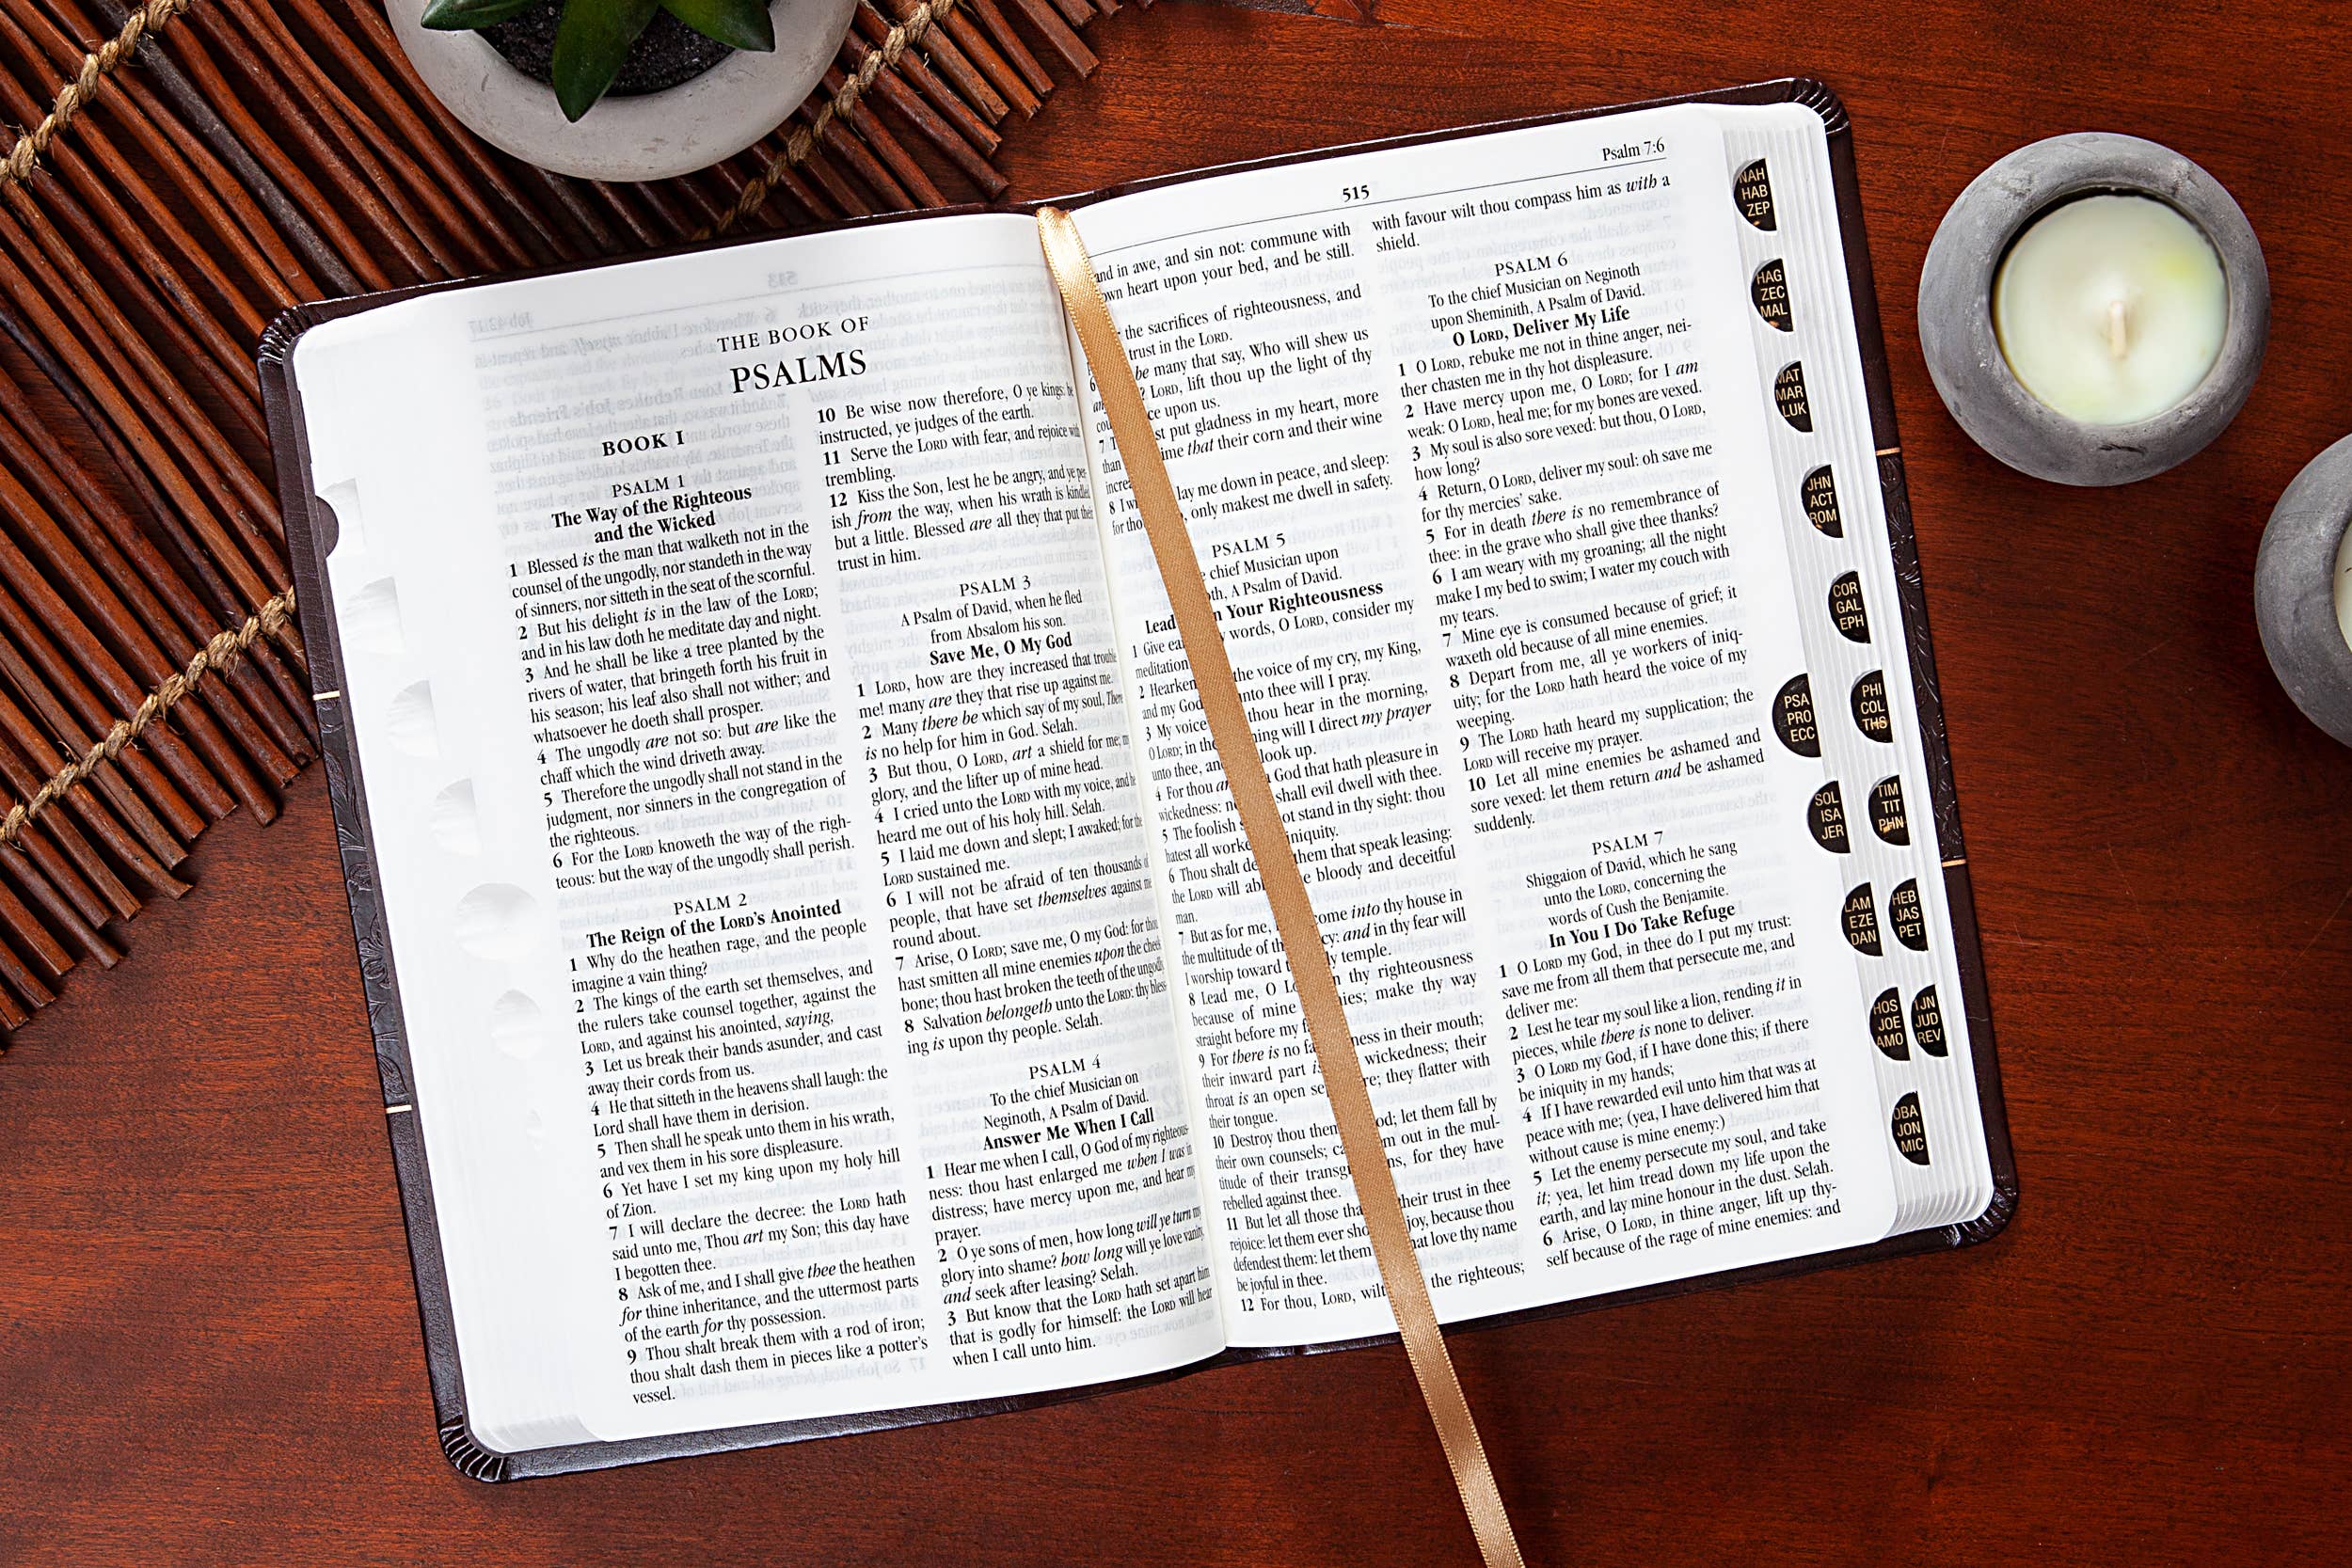 THE BOOK OF
PSALMS
BOOK I
PSALM 1
The Way of the Righteous
and the Wicked
1 Blessed is the man that walketh not in the
counsel of the ungodly, nor standeth in the way
of sinners, nor sitteth in the seat of the scornful.
2 But his delight is in the law of the LORD;
and in his law doth he meditate day and night.
3 And he shall be like a tree planted by the
rivers of water, that bringeth forth his fruit in
his season; his leaf also shall not wither; and
whatsoever he doeth shall prosper.
4 The ungodly are not so: but are like the
chaff which the wind driveth away.
5 Therefore the ungodly shall not stand in the
judgment, nor sinners in the congregation of
the righteous.
6 For the LORD knoweth the way of the righ-
teous: but the way of the ungodly shall perish.
PSALM 2
The Reign of the LORD's Anointed
1 Why do the heathen rage, and the people
imagine a vain thing?
2 The kings of the earth set themselves, and
the rulers take counsel together, against the
LORD, and against his anointed, saying,
3 Let us break their bands asunder, and cast
away their cords from us.
4 He that sitteth in the heavens shall laugh: the
Lord shall have them in derision.
5 Then shall he speak unto them in his wrath,
and vex them in his sore displeasure.
6 Yet have I set my king upon my holy hill
of Zion.
7 I will declare the decree: the LORD hath
said unto me, Thou art my Son; this day have
I begotten thee.
8 Ask of me, and I shall give thee the heathen
for thine inheritance, and the uttermost parts
of the earth for thy possession.
9 Thou shalt break them with a rod of iron;
thou shalt dash them in pieces like a potter's
vessel.
10 Be wise now therefore, O ye kings: be
instructed, ye judges of the earth.
11 Serve the LORD with fear, and rejoice with
trembling.
12 Kiss the Son, lest he be angry, and ye per-
ish from the way, when his wrath is kindled
but a little. Blessed are all they that put their
trust in him.
PSALM 3
A Psalm of David, when he fled
from Absalom his son.
Save Me, O My God
1 LORD, how are they increased that trouble
me! many are they that rise up against me.
2 Many there be which say of my soul, There
is no help for him in God. Selah.
3 But thou, O LORD, art a shield for me; my
glory, and the lifter up of mine head.
4 I cried unto the LORD with my voice, and he
heard me out of his holy hill. Selah.
5 I laid me down and slept; I awaked; for the
LORD sustained me.
6 I will not be afraid of ten thousands of
people, that have set themselves against me
round about.
7 Arise, O LORD; save me, O my God: for thou
hast smitten all mine enemies upon the cheek
bone; thou hast broken the teeth of the ungodly.
8 Salvation belongeth unto the LORD: thy bless-
ing is upon thy people. Selah.
PSALM 4
To the chief Musician on
Neginoth, A Psalm of David.
Answer Me When I Call
1 Hear me when I call, O God of my righteous-
ness: thou hast enlarged me when I was in
distress; have mercy upon me, and hear my
prayer.
2 O ye sons of men, how long will ye turn my
glory into shame? how long will ye love vanity,
and seek after leasing? Selah.
3 But know that the LORD hath set apart him
that is godly for himself: the LORD will hear
when I call unto him.
515
Psalm 7:6
and in awe, and sin not: commune with
own heart upon your bed, and be still.
the sacrifices of righteousness, and
trust in the LORD.
6 be many that say, Who will shew us
? LORD, lift thou up the light of thy
ce upon us.
7 st put gladness in my heart, more
than ime that their corn and their wine
8 I w lay me down in peace, and sleep:
for tho , only makest me dwell in safety.
PSALM 5
chief Musician upon
oth, A Psalm of David.
Lead n Your Righteousness
1 Give ea words, O LORD, consider my
meditation
2 Hearken the voice of my cry, my King,
and my God nto thee will I pray.
3 My voice thou hear in the morning,
O LORD; in the ning will I direct my prayer
unto thee, an look up.
4 For thou a God that hath pleasure in
wickedness: n shall evil dwell with thee.
5 The foolish ot stand in thy sight: thou
hatest all worke iniquity.
6 Thou shalt de them that speak leasing:
the LORD will ab e bloody and deceitful
man.
7 But as for me, come into thy house in
the multitude of th cy: and in thy fear will
I worship toward ly temple.
8 Lead me, O LO n thy righteousness
because of mine ies; make thy way
straight before my f
9 For there is no fa ness in their mouth;
their inward part i wickedness; their
throat is an open se re; they flatter with
their tongue.
10 Destroy thou them od; let them fall by
their own counsels; ca m out in the mul-
titude of their transg ns, for they have
rebelled against thee.
11 But let all those tha their trust in thee
rejoice: let them ever sho joy, because thou
defendest them: let them hat love thy name
be joyful in thee.
12 For thou, LORD, wilt the righteous;
with favour wilt thou compass him as with a
shield.
PSALM 6
To the chief Musician on Neginoth
upon Sheminith, A Psalm of David.
O LORD, Deliver My Life
1 O LORD, rebuke me not in thine anger, nei-
ther chasten me in thy hot displeasure.
2 Have mercy upon me, O LORD; for I am
weak: O LORD, heal me; for my bones are vexed.
3 My soul is also sore vexed: but thou, O LORD,
how long?
4 Return, O LORD, deliver my soul: oh save me
for thy mercies' sake.
5 For in death there is no remembrance of
thee: in the grave who shall give thee thanks?
6 I am weary with my groaning; all the night
make I my bed to swim; I water my couch with
my tears.
7 Mine eye is consumed because of grief; it
waxeth old because of all mine enemies.
8 Depart from me, all ye workers of iniq-
uity; for the LORD hath heard the voice of my
weeping.
9 The LORD hath heard my supplication; the
LORD will receive my prayer.
10 Let all mine enemies be ashamed and
sore vexed: let them return and be ashamed
suddenly.
PSALM 7
Shiggaion of David, which he sang
unto the LORD, concerning the
words of Cush the Benjamite.
In You I Do Take Refuge
1 O LORD my God, in thee do I put my trust:
save me from all them that persecute me, and
deliver me:
2 Lest he tear my soul like a lion, rending it in
pieces, while there is none to deliver.
3 O LORD my God, if I have done this; if there
be iniquity in my hands;
4 If I have rewarded evil unto him that was at
peace with me; (yea, I have delivered him that
without cause is mine enemy:)
5 Let the enemy persecute my soul, and take
it; yea, let him tread down my life upon the
earth, and lay mine honour in the dust. Selah.
6 Arise, O LORD, in thine anger, lift up thy-
self because of the rage of mine enemies: and
NAH
HAB
ZEP
HAG
ZEC
MAL
MAT
MAR
LUK
JHN
ACT
ROM
COR
GAL
EPH
PSA
PRO
ECC
PHI
COL
THS
SOL
ISA
JER
TIM
TIT
PHN
LAM
EZE
DAN
HEB
JAS
PET
HOS
JOE
AMO
1JN
JUD
REV
OBA
JON
MIC